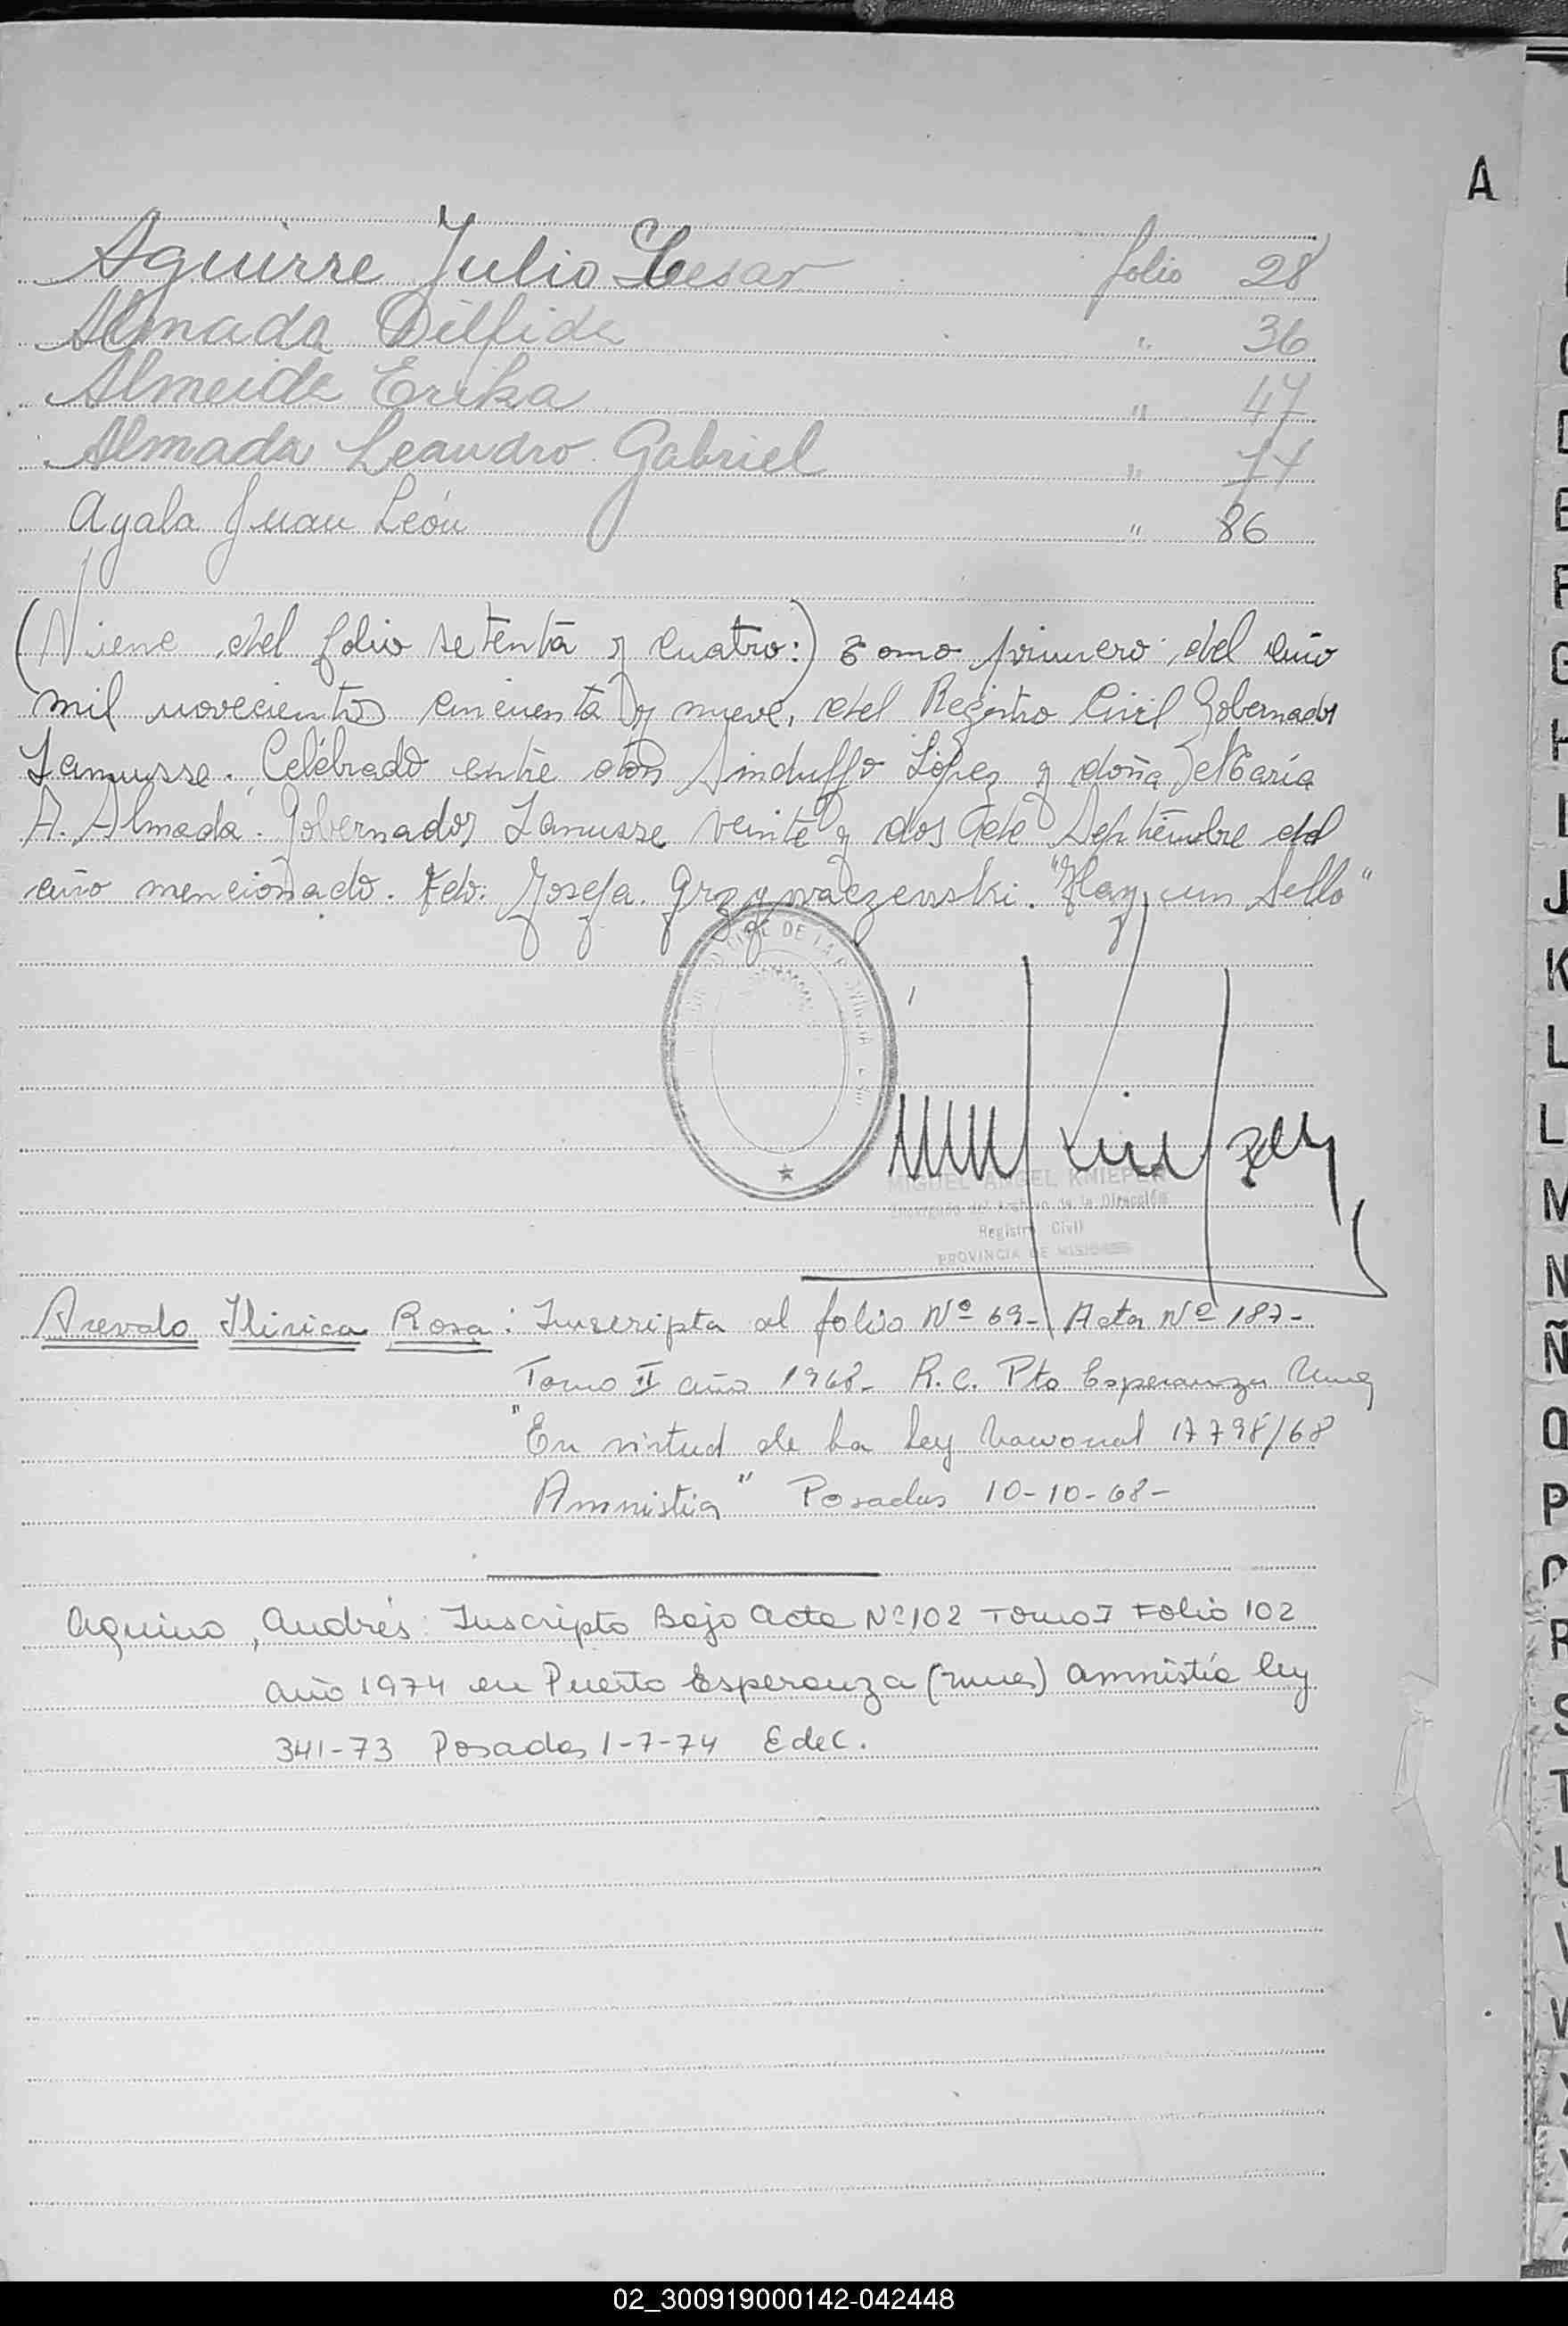 A
Aguirre Julio Cesar folio 28
Almada Dilfide " 36
Almeida Erika " 47
Almada Leandro Gabriel " 74
Ayala Juan León " 86
(Viene del folio setenta y cuatro:) Tomo primero del año
mil novecientos cincuenta y nueve, del Registro Civil Gobernador
Lanusse. Celébrado entre don Sinduffo López y doña María
A. Almada. Gobernador Lanusse veinte y dos de Septiembre del
año mencionado. Fdo: Josefa Grzywaczewski. "Hay un Sello"
MIGUEL ANGEL KNIEPER
Encargado del Archivo de la Dirección
Registro Civil
PROVINCIA DE MISIONES
Arevalo Ilirica Rosa: Inscripta al folio Nº 69- Acta Nº 187-
Tomo II año 1968- R.C. Pto Esperanza Mnes
"En virtud de la Ley Nacional 17798/68
Amnistia" Posadas 10-10-68-
Aquino, Andrés: Inscripto Bajo acta Nº 102 Tomo I Folio 102
año 1974 en Puerto Esperanza (mnes) amnistía ley
341-73 Posadas 1-7-74 EdeC.
02_300919000142-042448